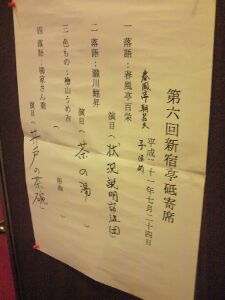 第六回新宿亭砥寄席
平成二十一年七月二十四日
春風亭朝呂久 子ほめ
一 落語:春風亭百栄
演目(状況説明窃盗団)
二 落語:瀧川鯉昇
演目(茶の湯)
三 色もの:檜山うめ吉
俗曲( )
四 落語:柳家さん喬
演目(井戸の茶碗)